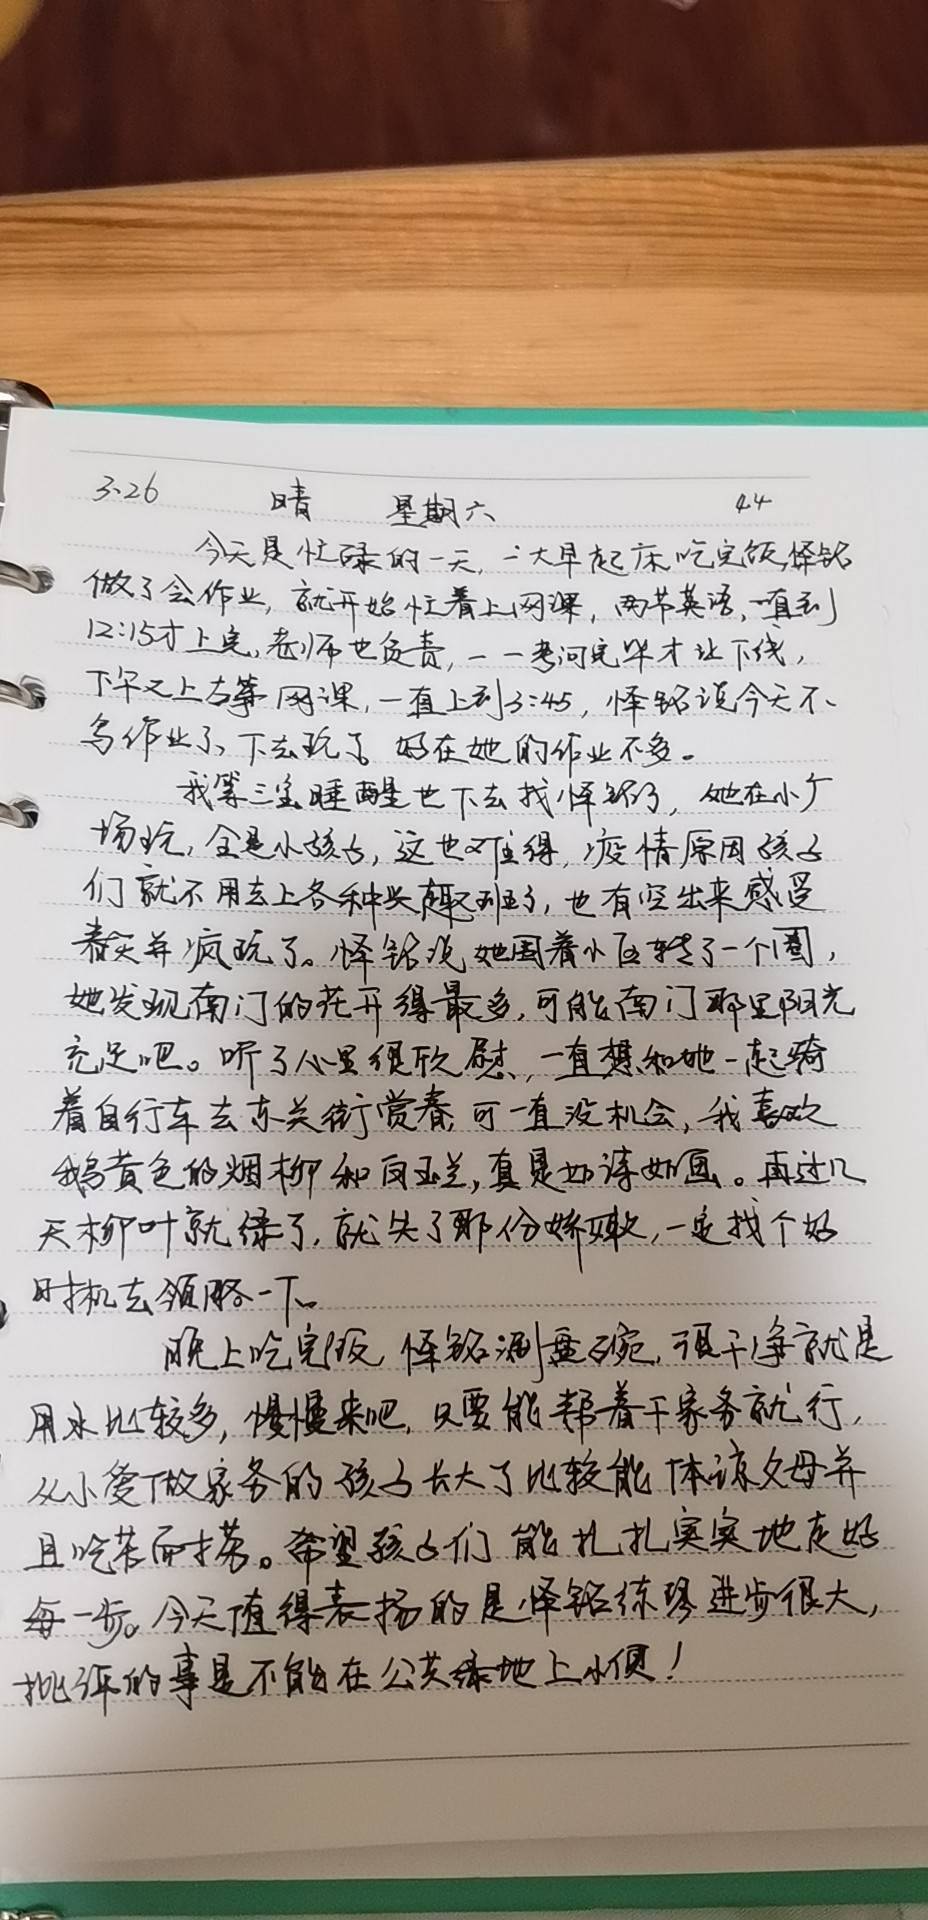 3.26 晴 星期六 44
今天是忙碌的一天,一大早起床吃完饭怿铭
做了会作业,就开始忙着上网课,两节英语,一直到
12:15才上完,老师也负责,一一考问完毕才让下线,
下午又上古筝网课,一直上到3:45,怿铭说今天不
写作业了,下去玩了 好在她的作业不多。
我等三宝睡醒也下去找怿铭了,她在小广
场玩,全是小孩子,这也难得,疫情原因孩子
们就不用去上各种兴趣班了,也有空出来感受
春天并疯玩了。怿铭说她围着小区转了一个圈,
她发现南门的花开得最多,可能南门那里阳光
充足吧。听了心里很欣慰,一直想和她一起骑
着自行车去东关街赏春,可一直没机会,我喜欢
鹅黄色的烟柳和白玉兰,真是如诗如画。再过几
天柳叶就绿了,就失了那份娇嫩,一定找个好
时机去领略一下。
晚上吃完饭,怿铭涮盘碗,很干净就是
用水比较多,慢慢来吧,只要能帮着干家务就行,
从小爱做家务的孩子长大了比较能体谅父母并
且吃苦耐劳。希望孩子们能扎扎实实地走好
每一步。今天值得表扬的是怿铭练琴进步很大,
批评的事是不能在公共绿地上小便!